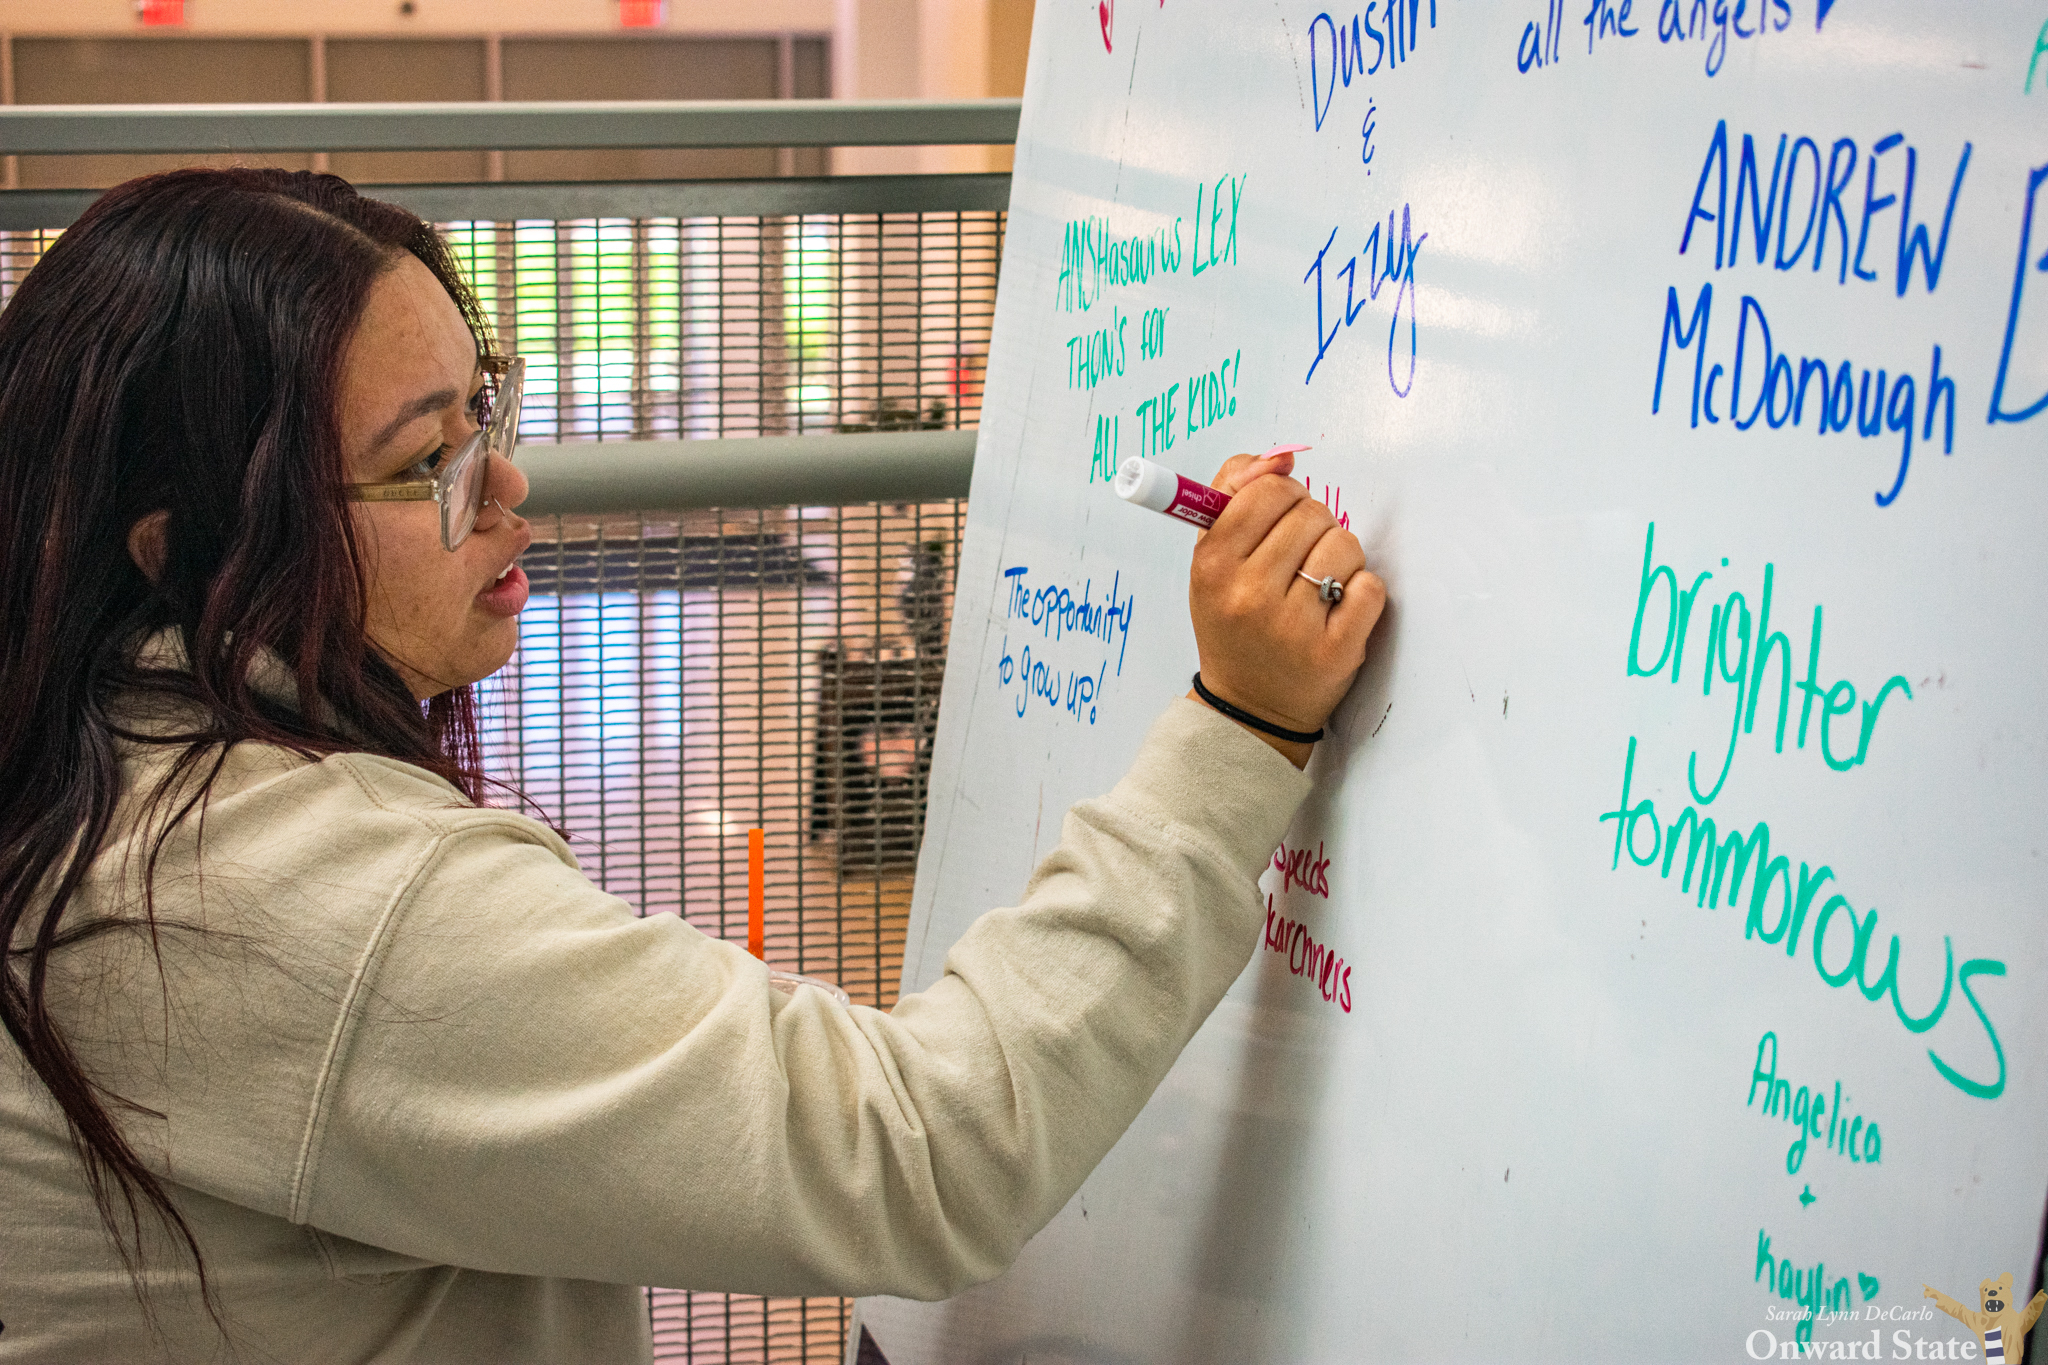 Dustin
&
Izzy
all the angels
ANDREW
McDonough
ANSHasaurus LEX
THON'S for
ALL THE KIDS!
The opportunity
to grow up!
chisel
low odor
speeds
karchners
brighter
tommorows
Angelica
+
Kaylin
Sarah Lynn DeCarlo
Onward State